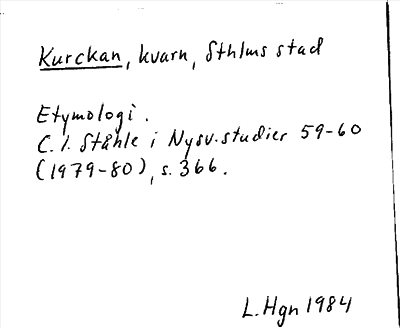 Kurckan, kvarn, Sthlms stad
Etymologi.
C.I. Ståhle i Nysv. studier 59-60
(1979-80), s. 366.
L. Hgn 1984